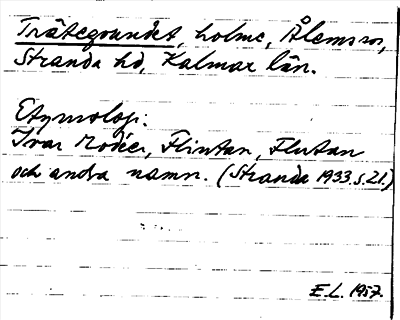 Trätegrundet, holme, Ålems sn,
Stranda hd, Kalmar län.
Etymologi:
Ivar Modéer, Flintan, Flutan
och andra namn. (Stranda 1933. s. 21.)
E.L. 1957.